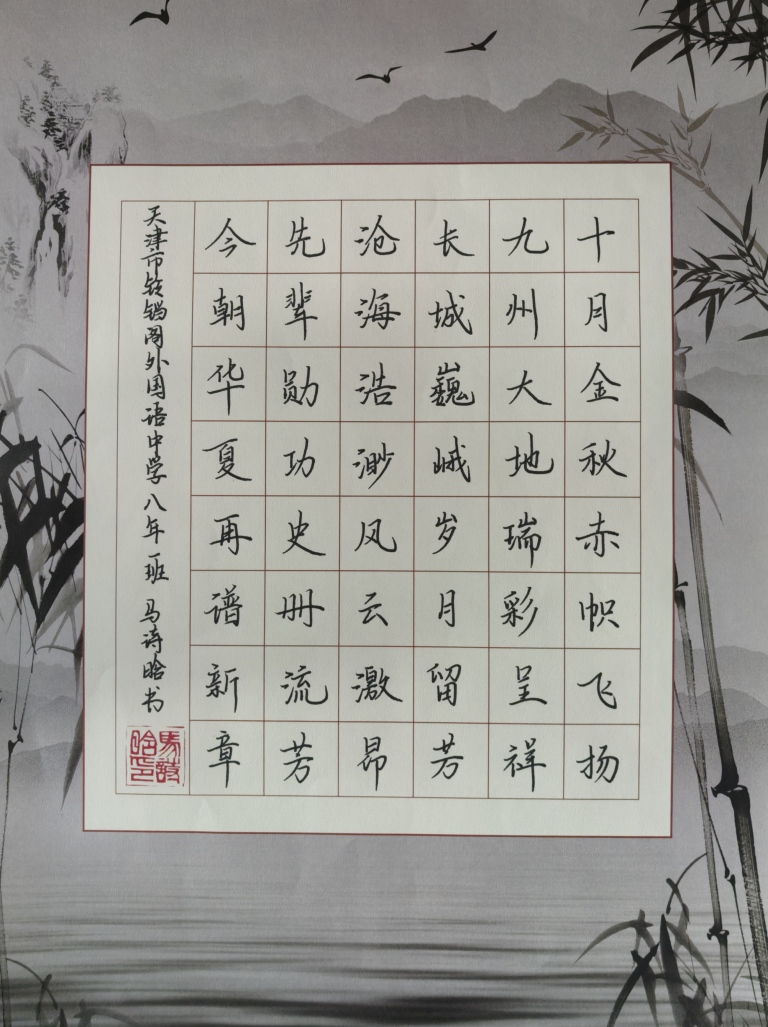 十月金秋赤帜飞扬
九州大地瑞彩呈祥
长城巍峨岁月留芳
沧海浩渺风云激昂
先辈勋功史册流芳
今朝华夏再谱新章
天津市外国语中学八年一班 马诗晗书
马诗晗印